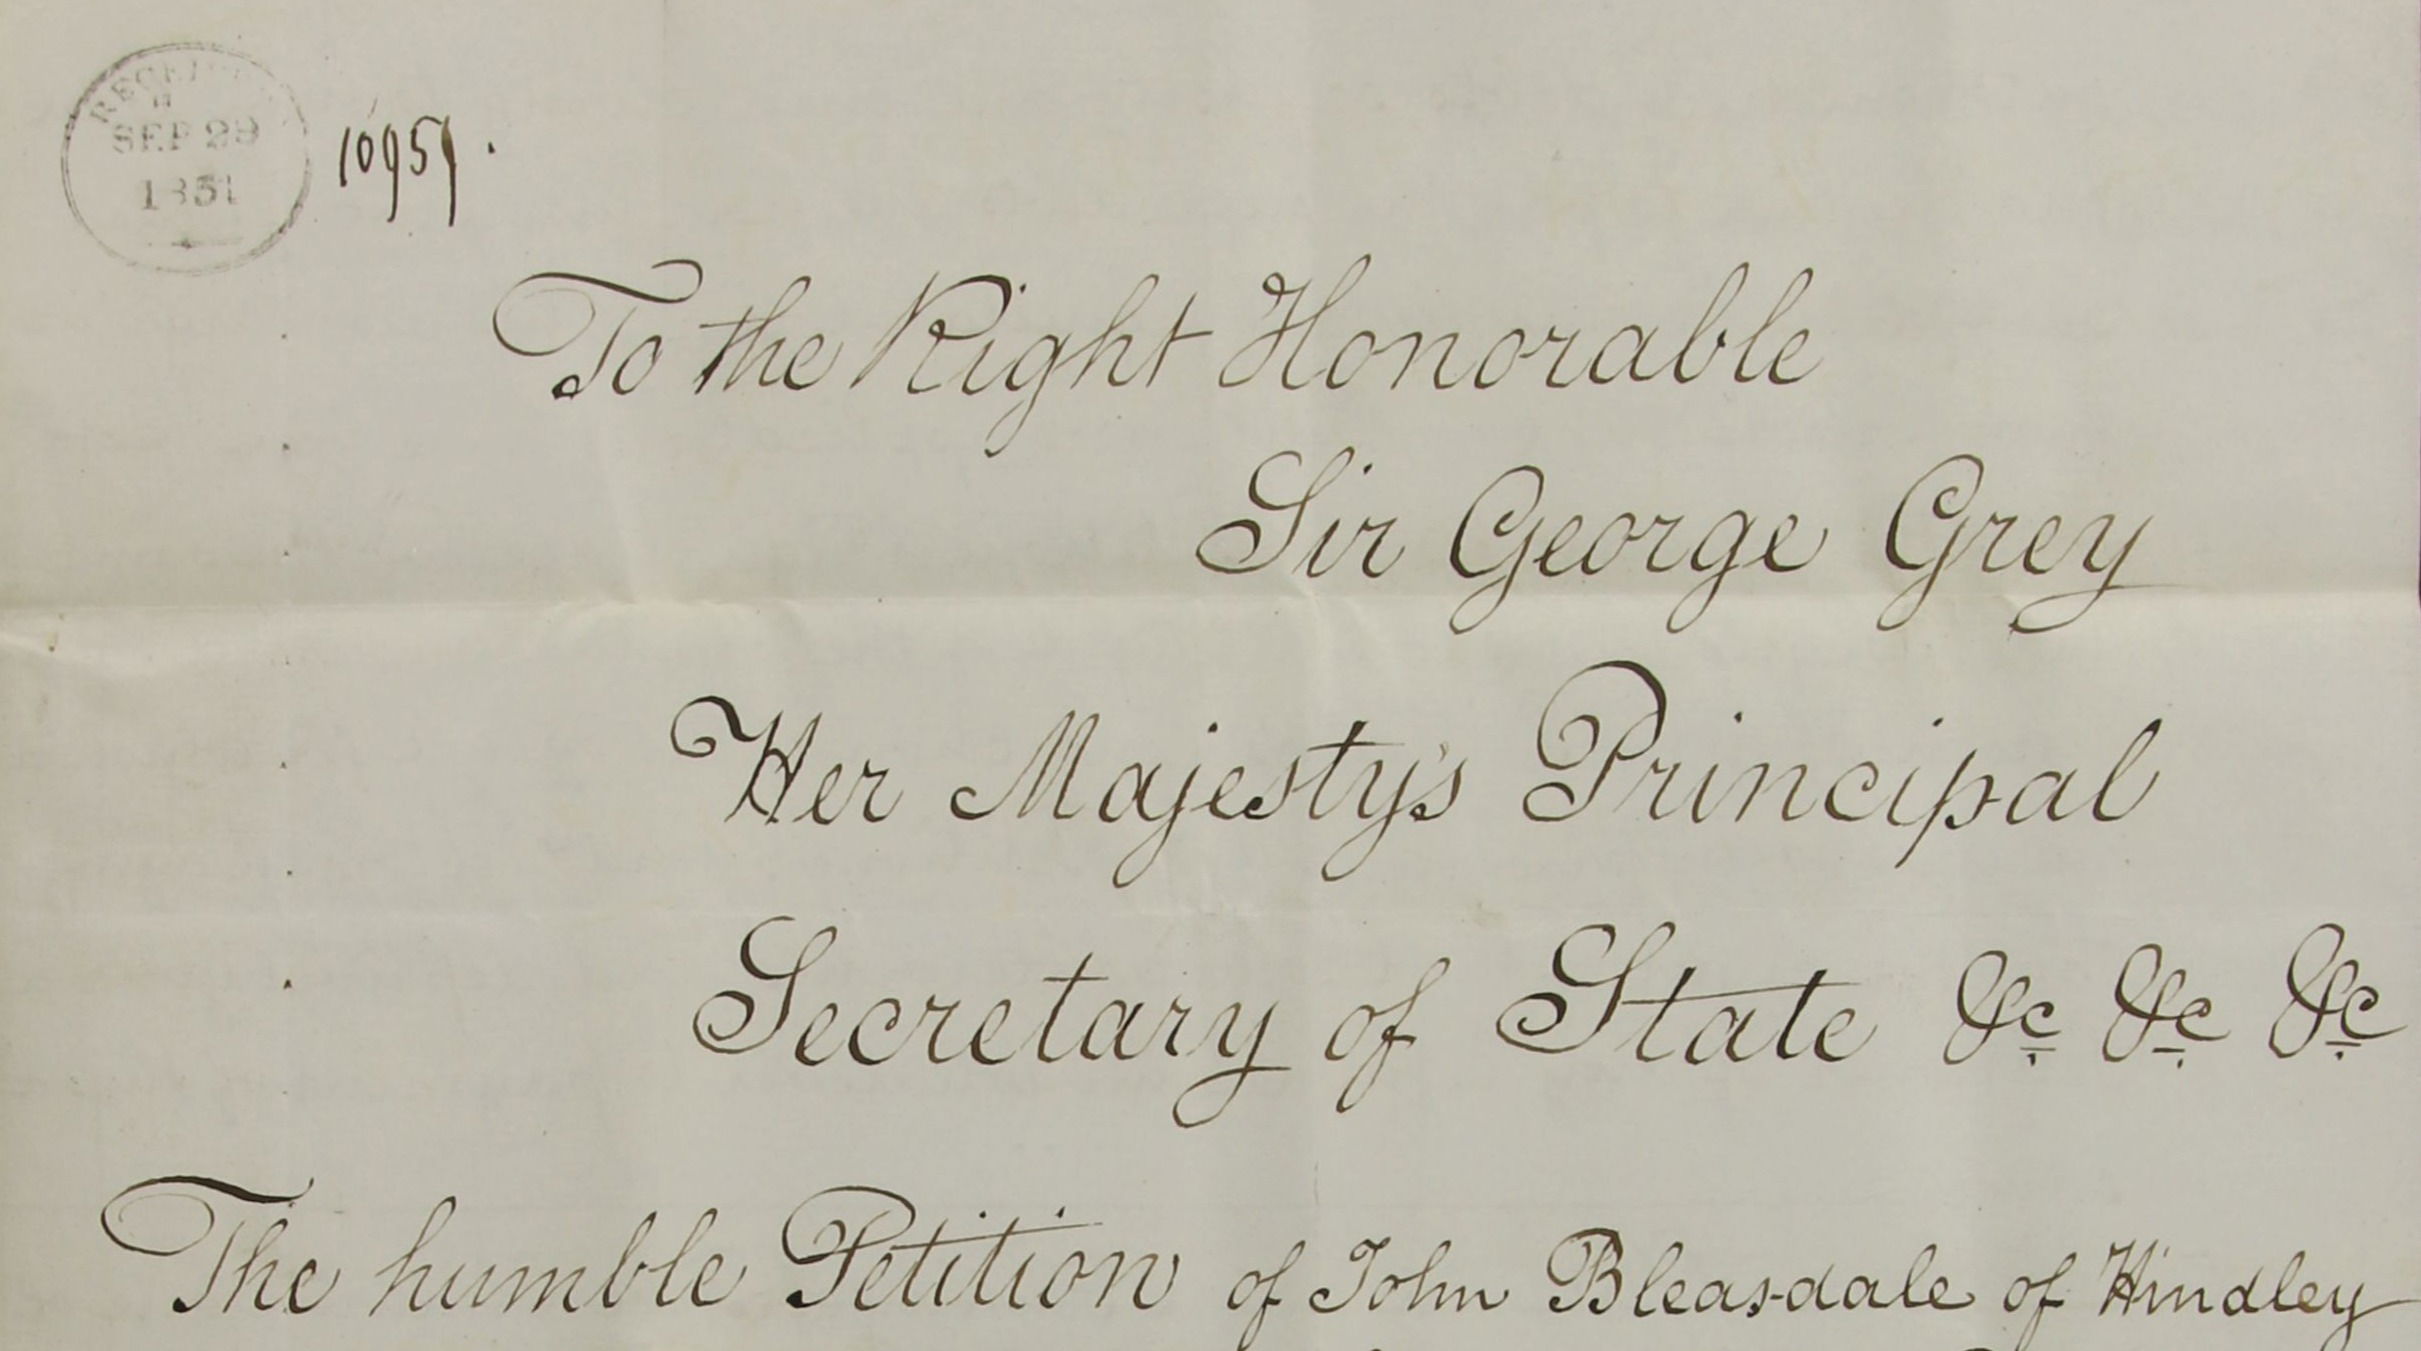 RECEIVED
SEP 29
1851
10959.
To the Right Honorable
Sir George Grey
Her Majesty's Principal
Secretary of State &c &c &c
The humble Petition of John Bleasdale of Hindley